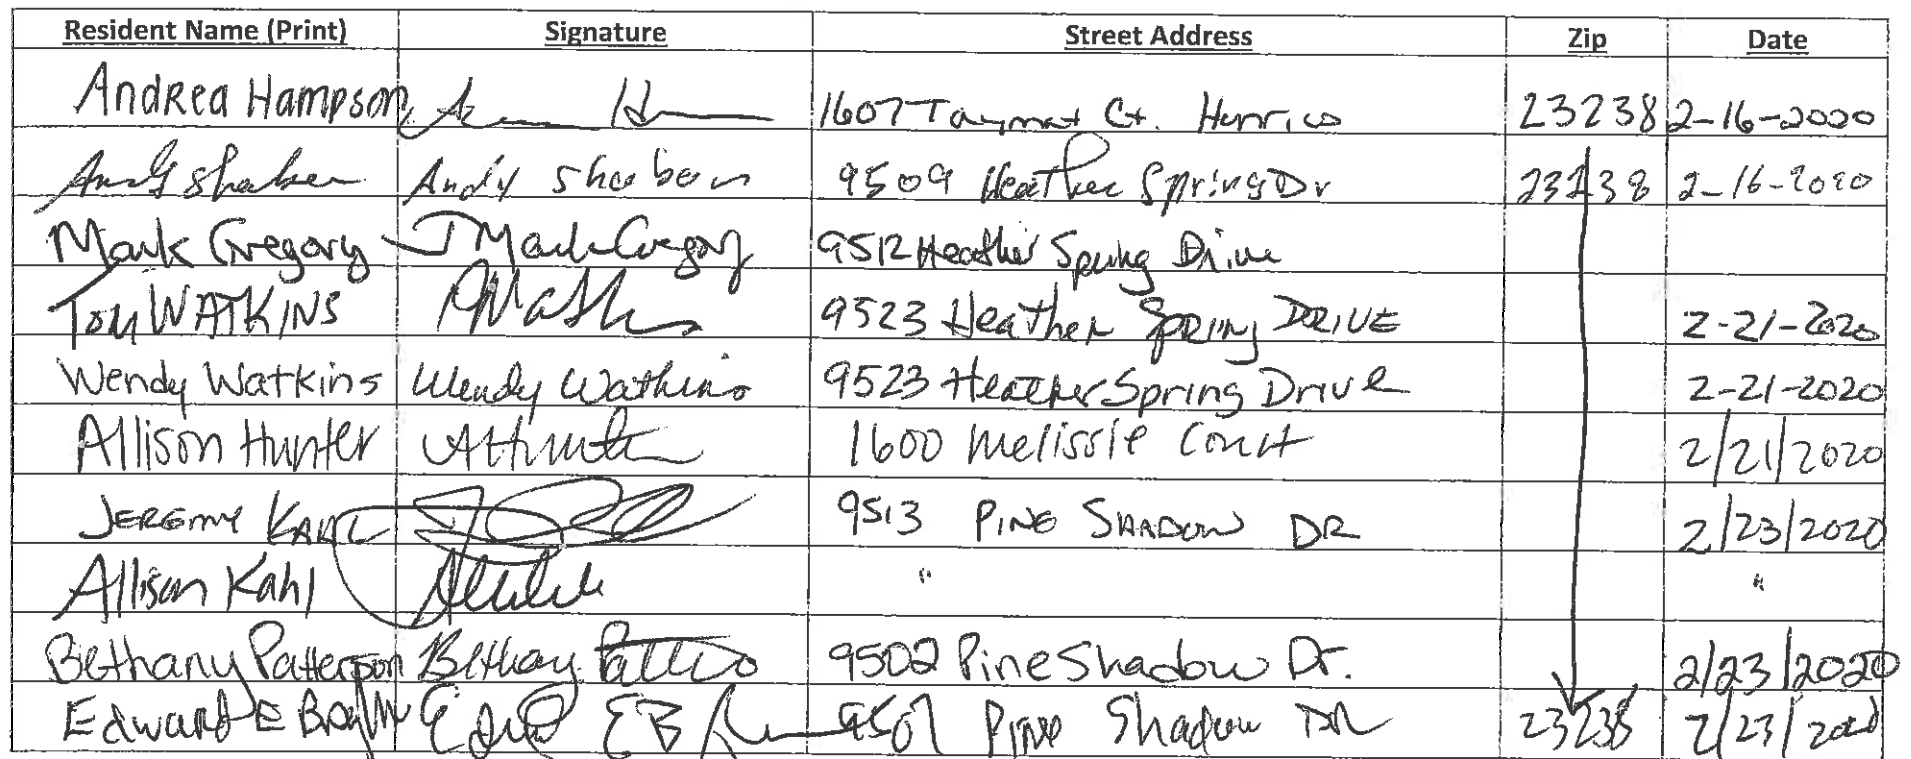 Resident Name (Print) Signature Street Address Zip Date
Andrea Hampson 1607 Ct. Henrico 23238 2-16-2020
Andy Shaban 9509 Heather Spring Dr 23238 2-16-2020
Mark Gregory J Mark Gregory 9512 Heather Spring Drive
Tom WATKINS 9523 Heather SPRING DRIVE 2-21-2020
Wendy Watkins Wendy Watkins 9523 Heather Spring Drive 2-21-2020
Allison Hunter 1600 Melissie Court 2/21/2020
JEREMY KAHL 9513 PINE SHADOW DR 2/23/2020
Allison Kahl " "
Bethany Patterson Bethany Patterson 9502 Pine Shadow Dr. 2/23/2020
Edward E 9507 Pine Shadow DR 23238 2/23/2020